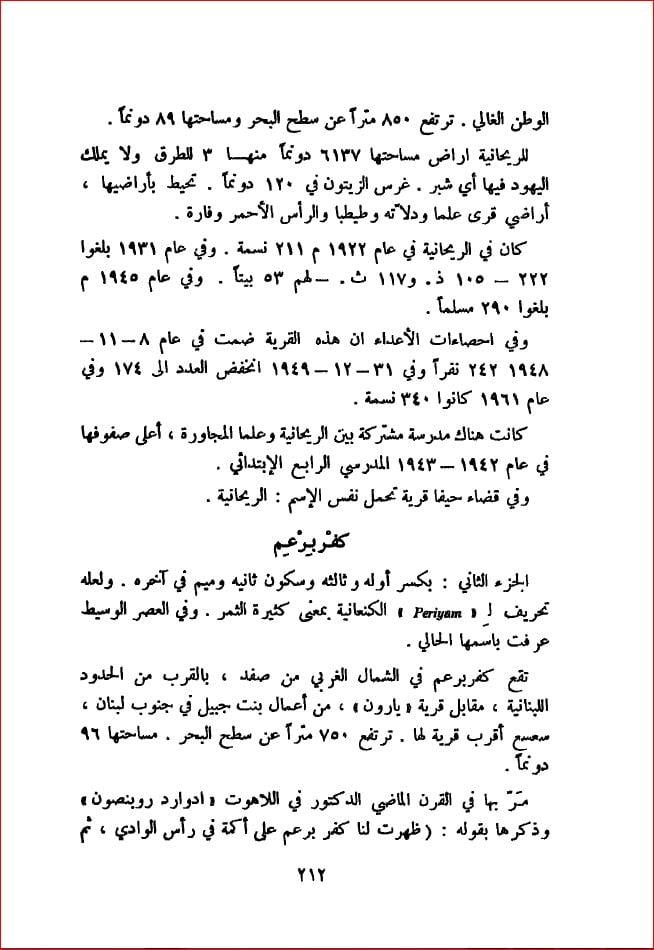 الوطن الغالي . ترتفع ٨٥٠ متراً عن سطح البحر ومساحتها ٨٩ دونماً .
للريحانية اراض مساحتها ٦١٣٧ دونماً منهـا ٣ للطرق ولا يملك
اليهود فيها أي شبر . غرس الزيتون في ١٢٠ دونماً . تحيط بأراضيها ،
أراضي قرى علما ودلاّته وطيطبا والرأس الأحمر وفارة .
كان في الريحانية في عام ١٩٢٢ م ٢١١ نسمة . وفي عام ١٩٣١ بلغوا
٢٢٢ – ١٠٥ ذ. و١١٧ ث. – لهم ٥٣ بيتاً . وفي عام ١٩٤٥ م
بلغوا ٢٩٠ مسلماً .
وفي احصاءات الأعداء ان هذه القرية ضمت في عام ٨ – ١١ –
١٩٤٨ ٢٤٢ نفراً وفي ٣١ – ١٢ – ١٩٤٩ انخفض العدد الى ١٧٤ وفي
عام ١٩٦١ كانوا ٣٤٠ نسمة .
كانت هناك مدرسة مشتركة بين الريحانية وعلما المجاورة ، أعلى صفوفها
في عام ١٩٤٢ – ١٩٤٣ المدرسي الرابع الإبتدائي .
وفي قضاء حيفا قرية تحمل نفس الإسم : الريحانية .
كفْر بِرْعِم
الجزء الثاني : بكسر أوله وثالثه وسكون ثانيه وميم في آخره . ولعله
تحريف لِـ « Periyam » الكنعانية بمعنى كثيرة الثمر . وفي العصر الوسيط
عرفت باسمها الحالي .
تقع كفربرعم في الشمال الغربي من صفد ، بالقرب من الحدود
اللبنانية ، مقابل قرية « يارون » ، من أعمال بنت جبيل في جنوب لبنان ،
سعسع أقرب قرية لها . ترتفع ٧٥٠ متراً عن سطح البحر . مساحتها ٩٦
دونماً .
مَرّ بها في القرن الماضي الدكتور في اللاهوت « ادوارد روبنصون »
وذكرها بقوله : ( ظهرت لنا كفر برعم على أكمة في رأس الوادي ، ثم
٢١٢